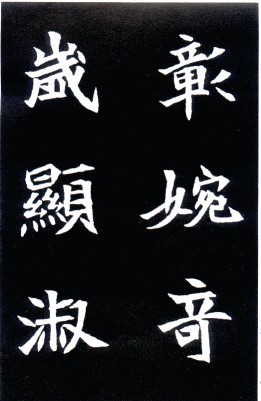 彰婉竒
歲顯淑